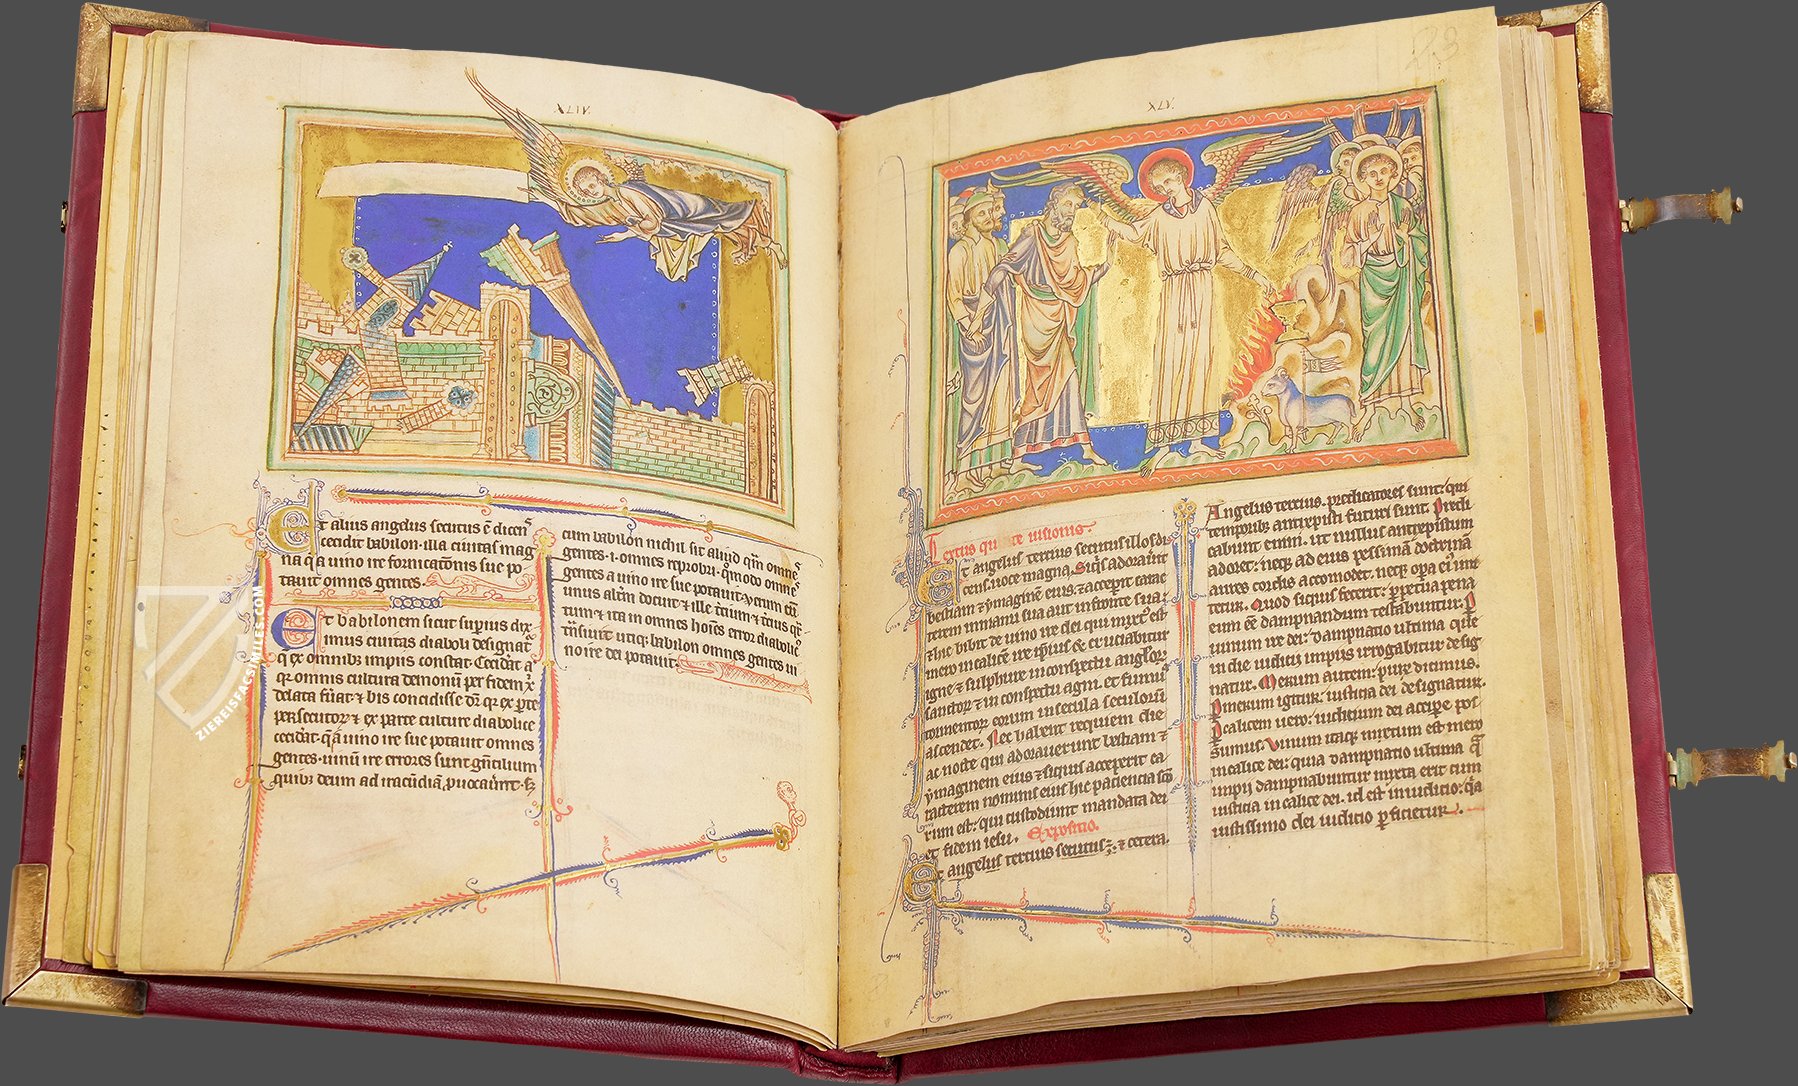 XLIV.
Et alius angelus secutus ē dicens̄
cecidit babilon. illa ciuitas mag
na q̄ a uino ire fornicatōnis sue po
tauit omnes gentes.
Et babilonem sicut sup̄ius dix
imus ciuitas diaboli designat᷑
q̄ ex omnib; impiis constat. Cecid̄at
omnis cultura demonū per fidem x̄
delata fūat ⁊ bis concidisse
persecutoꝝ ⁊ ex parte culture diabolice
a uino ire sue potauit omnes
gentes. uinū ire errores sunt gn̄tilium
quib; deum ad iracūdiā
cum babilon nichil sit aliud q̄m omnes̄
gentes. i. omnes reprobi. q̄modo omnes̄
gentes a uino ire sue potauit.
unus alt̄m docuit ⁊ ille t̄cium ⁊ t̄cius
tum ⁊ ita in omnes hoīes error diabolic᷒
babilon omnes gentes ui
no ire dei potauit.
XLV.
23
Textus uisionis.
Et angelus tercius secutus illos di
cens. uoce magna. Siq̄s adorauīt
bestiam ⁊ ymaginē eius. ⁊ acceperit carac
terem in manu sua aut in fronte sua.
⁊ hic bibit de uino ire dei qui mixt᷒ est
mero in calice ire ip̄ius & cruciabitur
igne ⁊ sulphure in conspectu angl̄oꝝ
sanctoꝝ ⁊ in conspectu agni. et fumus
tormentoꝝ eorum in secula seculorū
ascendet. Nec habent requiem die
ac nocte qui adorauerunt bestiam ⁊
ymaginem eius ⁊ siquis acceperit ca
racterem nominis eius hic paciencia sc̄o
rum est. qui custodiunt mandata dei
et fidem iesu. Expositio.
Et angelus tercius secutus ⁊ cetera.
Angelus tercius. predicatores sunt. qui
temporib; antexp̄isti futuri sunt. Predi
cabunt enim. ut nullus antexp̄istum
adoret. neq; ad eius pessimā doctrinā
aures cordis accomodet. neq; opera ei᷒ imi
tetur. Quod siquis fecerit. perpetua pena
eum ēē dampnandum testabuntur.
uinum ire dei. dampnatio ultima que
in die iudicii impiis irrogabitur desig
natur. Merum autem. pure dicimus.
Per merum igitur. iusticia dei designatur.
Per calicem uero. iudicium dei accipe pos
sumus. Vinum itaq; mixtum est mero
in calice dei. quia dampnatio ultima
impii dampnabuntur mixta erit cum
iusticia in calice dei. id est in iudicio. q̄a
iustissimo dei iudicio perficietur.
ZIEREISFACSIMILES.COM